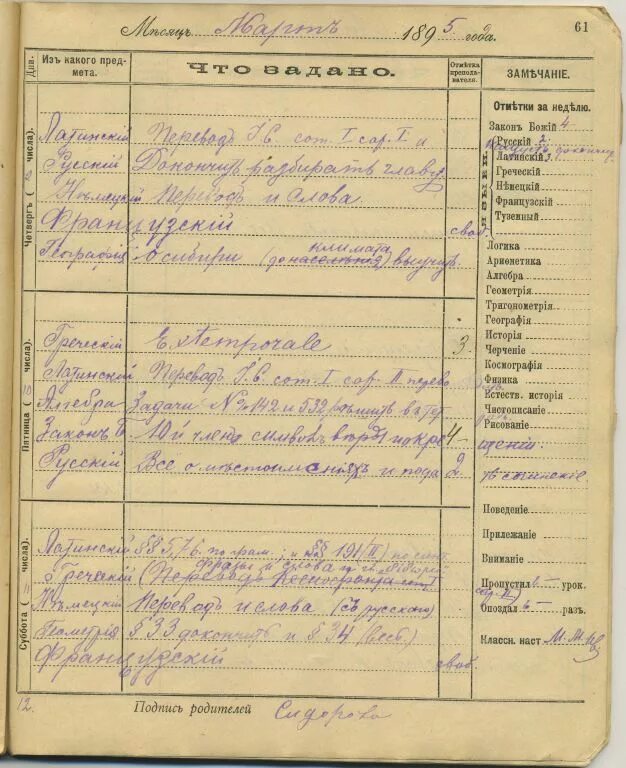 61
Мѣсяцъ Мартъ 1895 года.
Дни.
Изъ какого предмета.
Что задано.
Отмѣтка преподавателя.
ЗАМѢЧАНІЕ.
Четвергъ ( числа).
Латинскій Переводъ J. C. com. I cap. I и
Русскій Докончить разбирать главу
Нѣмецкій Переводъ и слова
Французскій своб.
климата
Географія о сибири (до населенія) выучить
Пятница (10 числа).
Греческій Extemporale 3
Латинскій Переводъ J. C. com. I cap. II перево
Алгебра Задачи №№ 142 и 532 рѣшить в тет
Законъ Б. 10й членъ символа вѣры и покре 4-
щеній
Русскій Все о мѣстоименіяхъ и 2
Суббота (11 числа).
Латинскій §§ 576 по грам.; и §§ 191 (II) по
фразы и слова
Греческій (Переводъ Ксенофонта
Нѣмецкій Переводъ и слова (съ русскаго)
Геометрія § 33 докончить и § 34 (весь)
Французскій своб.
12.
Подпись родителей Сидорова
Отмѣтки за недѣлю.
Законъ Божій 4
ЯЗЫКИ.
Русскій 2
Латинскій 3
Греческій
Нѣмецкій
Французскій
Тузенный
Логика
Ариѳметика
Алгебра
Геометрія
Тригонометрія
Географія
Исторія
Черченіе
Космографія
Физика
Естеств. исторія
Чистописаніе
Рисованіе
Поведеніе
Прилежаніе
Вниманіе
Пропустил 6 — урок.
Опоздал 6 — разъ.
Классн. наст